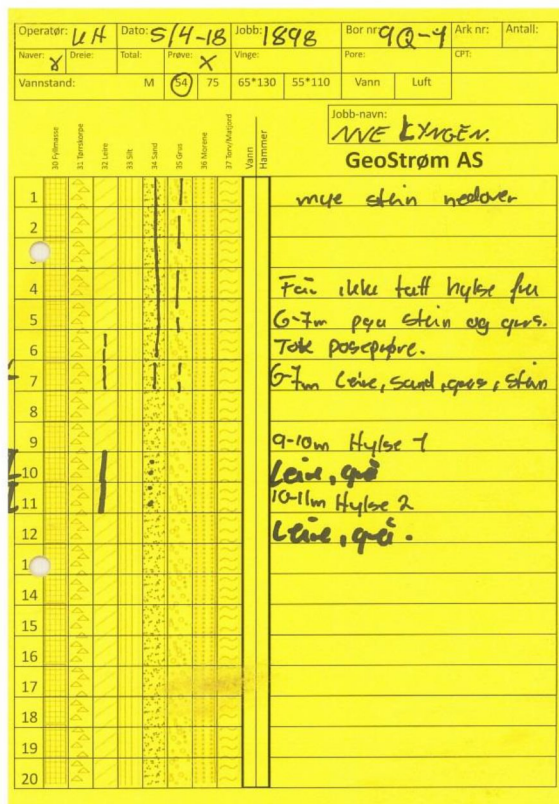 Operatør: UH Dato: 5/4-18 Jobb: 1898 Bor nr: 9Q-1 Ark nr: Antall:
Naver: X Dreie: Total: Prøve: X Vinge: Pore: CPT:
Vannstand: M 54 75 65*130 55*110 Vann Luft
Jobb-navn:
NVE LYNGEN.
GeoStrøm AS
30 Fyllmasse
31 Tørrskorpe
32 Leire
33 Silt
34 Sand
35 Grus
36 Morene
37 Torv/Matjord
Vann
Hammer
1 mye stein nedover
2
3
4 Får ikke tatt hylse fra
5 6-7m pga stein og grus.
6 Tok poseprøve.
7 6-7m Leire, sand, grus, stein
8
9 9-10m Hylse 1
10 Leire, grå
11 10-11m Hylse 2
12 Leire, grå.
1
14
15
16
17
18
19
20